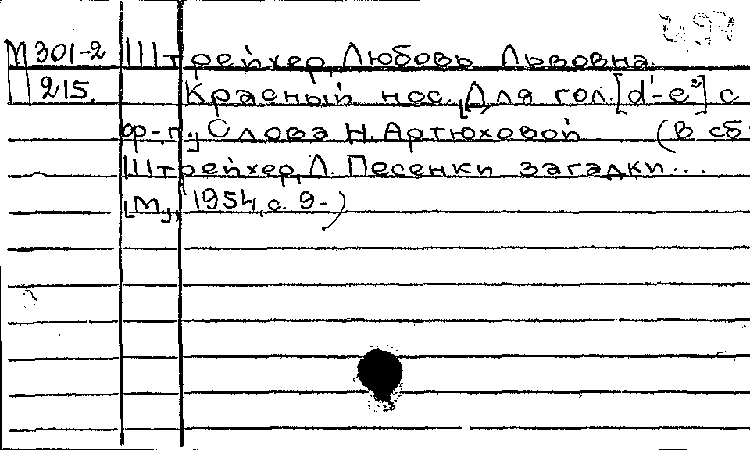 М 301-2 Штрейхер, Любовь Львовна.
215. Красный нос. [Для гол. [d¹-e²] с
ф-п.], Слова Н. Артюховой (В сб:
Штрейхер, Л. Песенки загадки...
[М], 1954, с. 9-)